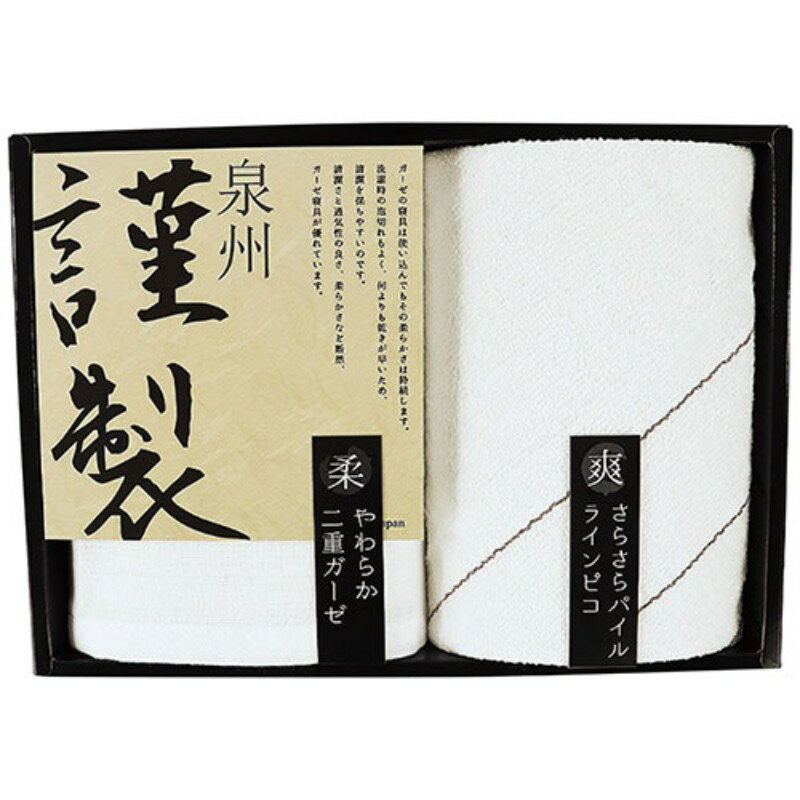 泉州
謹製
ガーゼの寝具は使い込んでもその柔らかさは持続します。
洗濯時の泡切れもよく、何よりも乾きが早いため、
清潔を保ちやすいのです。
清潔さと通気性の良さ、柔らかさなど断然、
ガーゼ寝具が優れています。
pan
柔
やわらか
二重ガーゼ
爽
さらさらパイル
ラインピコ